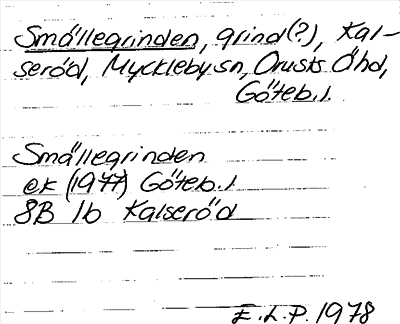 Smällegrinden, grind(?), Kal-
seröd, Myckleby sn, Orusts Ö hd,
Göteb. l.
Smällegrinden
ek (1977) Göteb. l
8B 1b Kalseröd
E.L.P. 1978